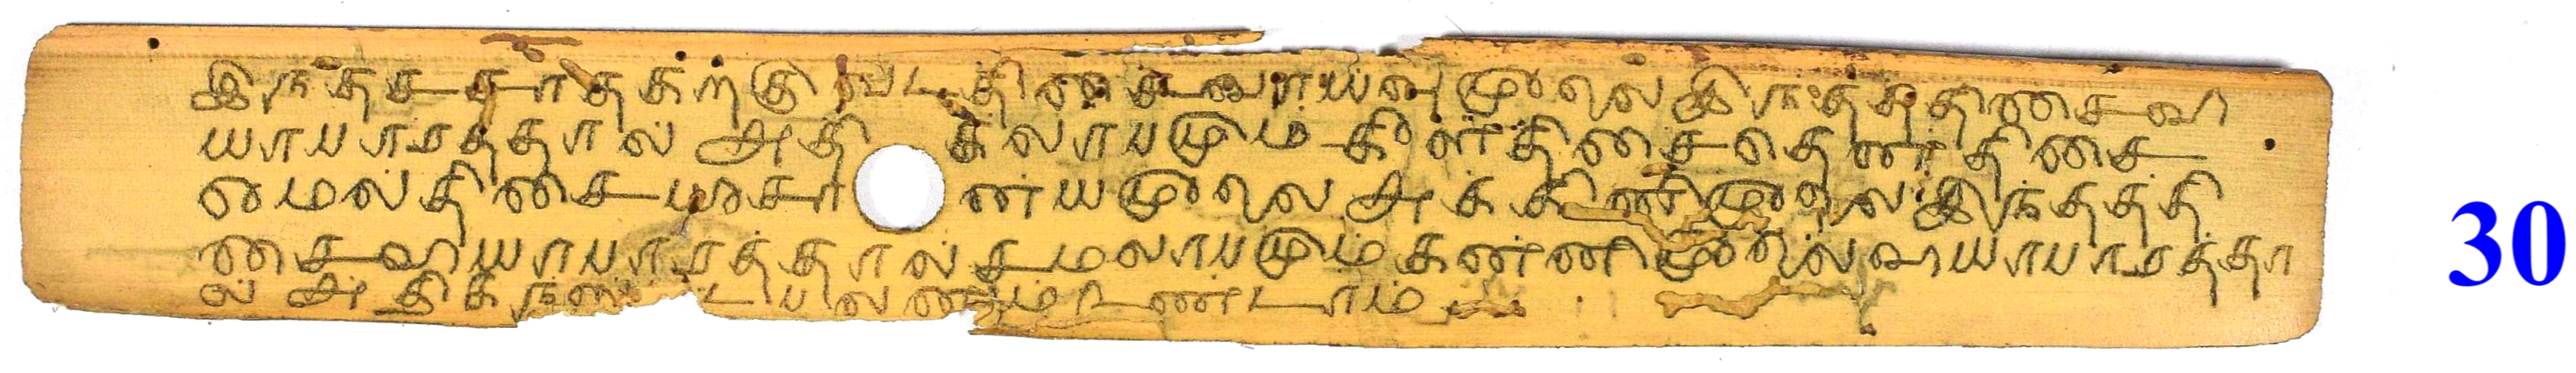 இந்தச சாதகற்கு வடதிசை வாயுவு மூலை இந்தத்திசை வி
யாபாரத்தால் அதிக லாபமும் கிள்திசை தென்திசை
மெல்திசை யீசான்ய மூலை அக்கினி மூலை இந்தத்தி
சை வியாபாரத்தால் சமலாபமும் கன்னி மூலை வியாபாரத்தா
ல் அதிக நஸ்டபலனும் உண்டாம்
30